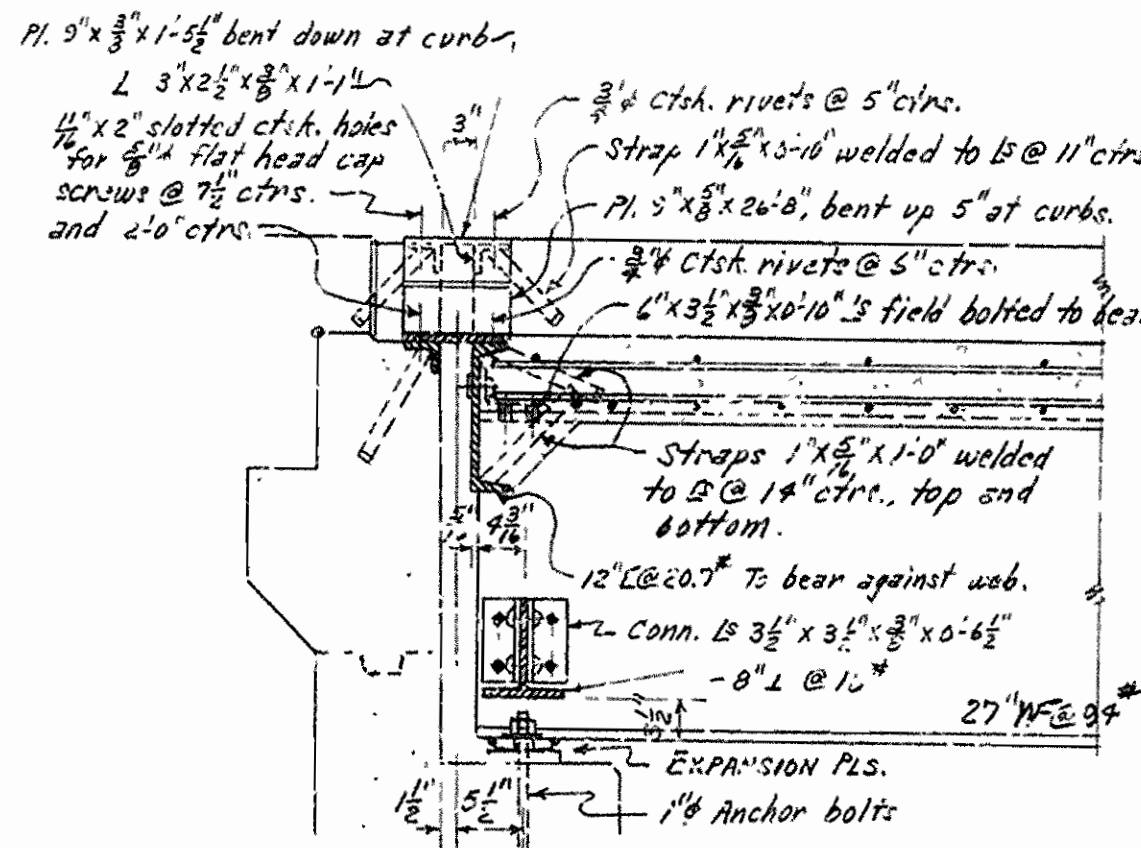 Pl. 9"x 3/8"x 1'-5 1/2" bent down at curb
L 3"x2 1/2"x 3/8"x 1'-1"
11/16"x 2" slotted ctsk. holes
for 5/8"ϕ flat head cap
screws @ 7 1/2" ctrs.
and 2'-0" ctrs.
3"
3/4"ϕ Ctsk. rivets @ 5"ctrs.
Strap 1"x 5/16"x 0'-10" welded to Ls @ 11"ctrs
Pl. 9"x 5/8"x 26'-8", bent up 5" at curbs.
3/4"ϕ Ctsk. rivets @ 5"ctrs.
6"x 3 1/2"x 3/8"x0'-10" Ls field bolted to bea
Straps 1"x 5/16"x 1'-0" welded
to @ 14"ctrs., top and
bottom.
4 3/16"
12"[@20.7# To bear against web.
Conn. Ls 3 1/2"x 3 1/2"x 3/8"x 0'-6 1/2"
8"I @
3 1/2"
27"WF@94#
EXPANSION PLS.
1 1/2" 5 1/2"
1"ϕ Anchor bolts